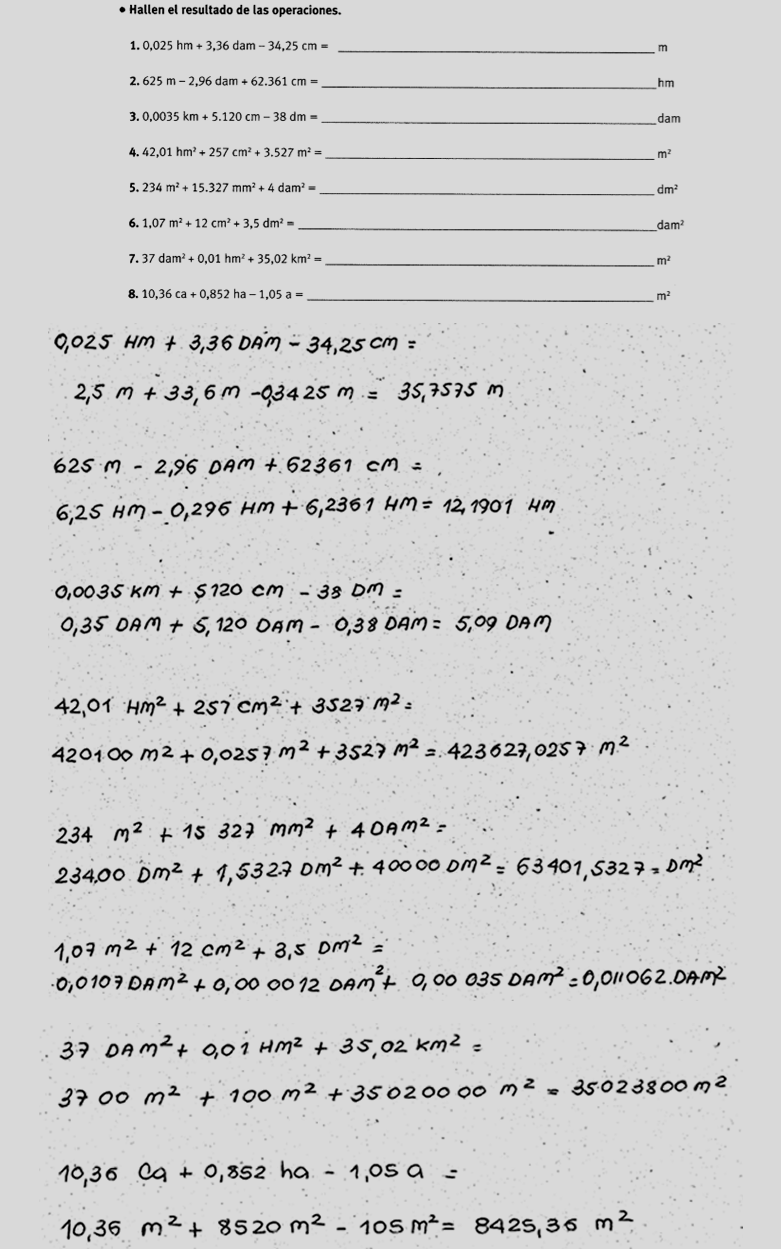 • Hallen el resultado de las operaciones.
1. 0,025 hm + 3,36 dam – 34,25 cm = ______ m
2. 625 m – 2,96 dam + 62.361 cm = ______ hm
3. 0,0035 km + 5.120 cm – 38 dm = ______ dam
4. 42,01 hm² + 257 cm² + 3.527 m² = ______ m²
5. 234 m² + 15.327 mm² + 4 dam² = ______ dm²
6. 1,07 m² + 12 cm² + 3,5 dm² = ______ dam²
7. 37 dam² + 0,01 hm² + 35,02 km² = ______ m²
8. 10,36 ca + 0,852 ha – 1,05 a = ______ m²
0,025 Hm + 3,36 DAm – 34,25 cm =
2,5 m + 33,6 m – 0,3425 m = 35,7575 m
625 m – 2,96 DAm + 62361 cm =
6,25 Hm – 0,296 Hm + 6,2361 Hm = 12,1901 Hm
0,0035 Km + 5120 cm – 38 Dm =
0,35 DAm + 5,120 DAm – 0,38 DAm = 5,09 DAm
42,01 Hm² + 257 cm² + 3527 m² =
420100 m² + 0,0257 m² + 3527 m² = 423627,0257 m²
234 m² + 15 327 mm² + 4 DAm² =
23400 Dm² + 1,5327 Dm² + 40000 Dm² = 63401,5327 = Dm²
1,07 m² + 12 cm² + 3,5 Dm² =
0,0107 DAm² + 0,00 0012 DAm² + 0,00 035 DAm² = 0,011062 DAm²
37 DAm² + 0,01 Hm² + 35,02 km² =
37 00 m² + 100 m² + 35020000 m² = 35023800 m²
10,36 Ca + 0,852 ha – 1,05 a =
10,36 m² + 8520 m² – 105 m² = 8425,36 m²